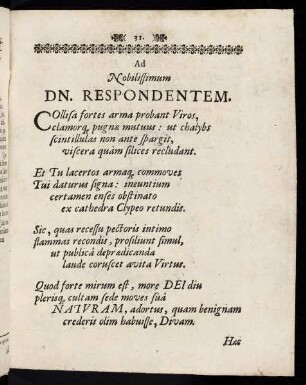 31.
Ad
Nobilissimum
DN. RESPONDENTEM.
COllisa fortes arma probant Viros,
clamorq, pugnæ mutuus: ut chalybs
scintillulas non ante spargit,
viscera quàm silices recludant.
Et Tu lacertos armaq, commoves
Tui daturus signa: ineuntium
certamen enses obstinato
ex cathedra Clypeo retundis.
Sic, quas recessu pectoris intimo
flammas recondis, prosiliunt simul,
ut publicâ depradicanda
laude coruscet avita Virtus.
Quod forte mirum est, more DEI diu
plerisq, cultam sede moves suâ
NATURAM, adortus, quam benignam
crederis olim habuisse, Divam.
Hac